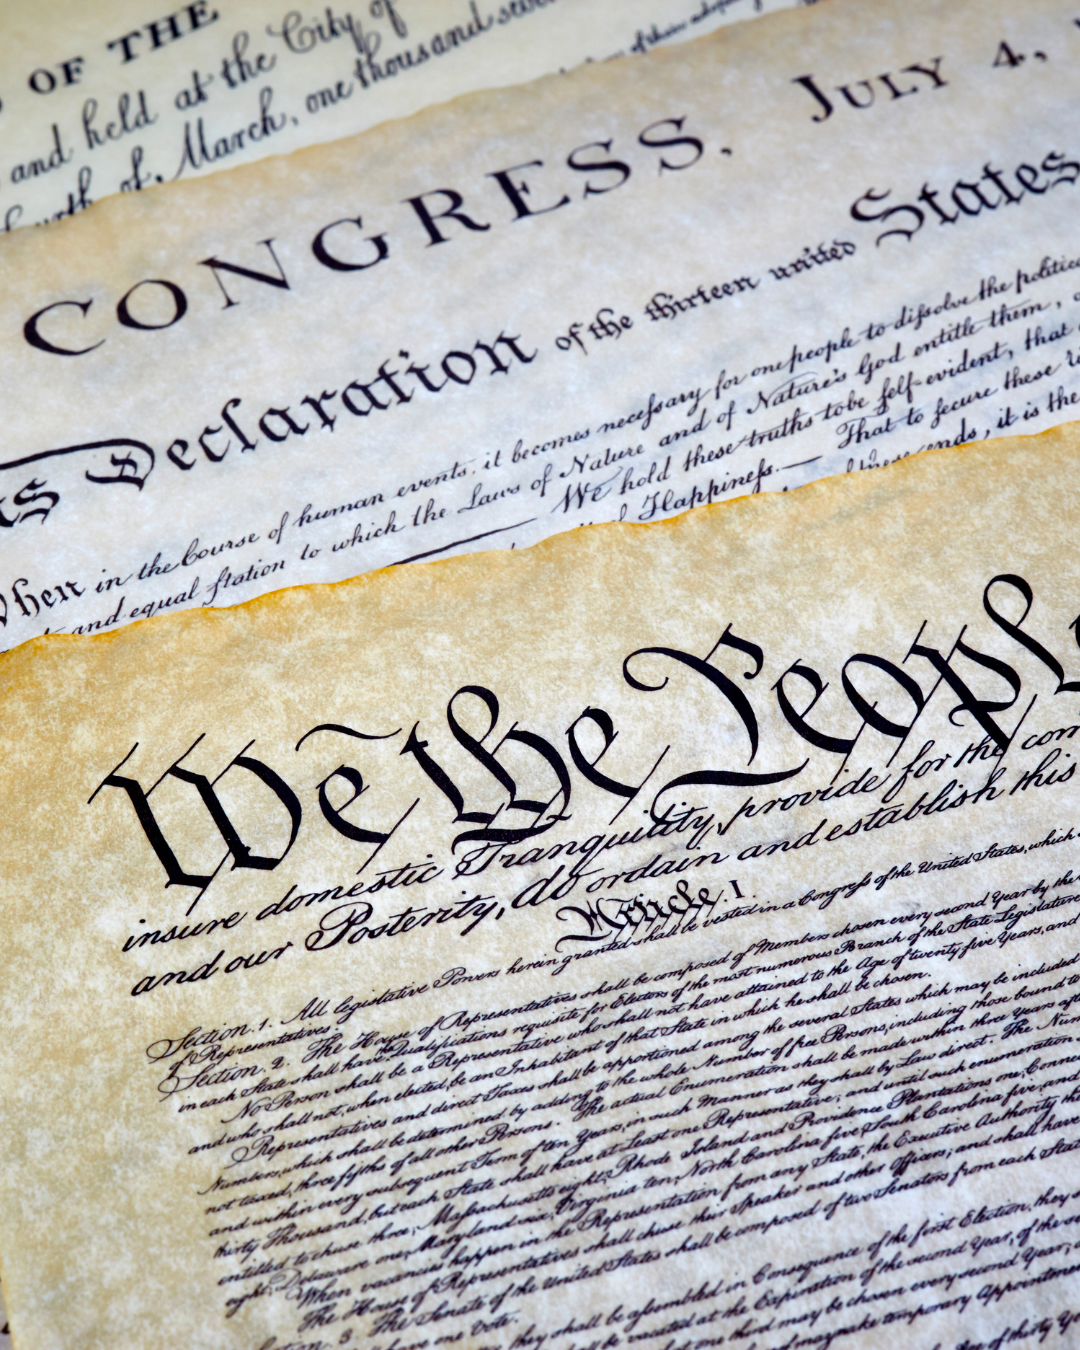 OF THE
and held at the City of
fourth of March, one thousand seven
CONGRESS. JULY 4,
Declaration of the thirteen united States
When in the Course of human events, it becomes necessary for one people to dissolve the politic
and equal station to which the Laws of Nature and of Nature's God entitle them,
We hold these truths to be self-evident, that
Happiness.— That to secure these
these ends, it is the
We the People
insure domestic Tranquility, provide for the com
and our Posterity, do ordain and establish this
Article. I.
Section. 1. All legislative Powers herein granted shall be vested in a Congress of the United States, which
of Representatives.
Section. 2. The House of Representatives shall be composed of Members chosen every second Year by the
in each State shall have the Qualifications requisite for Electors of the most numerous Branch of the State Legislature
No Person shall be a Representative who shall not have attained to the Age of twenty five Years, and
and who shall not, when elected, be an Inhabitant of that State in which he shall be chosen.
Representatives and direct Taxes shall be apportioned among the several States which may be included
Numbers, which shall be determined by adding to the whole Number of free Persons, including those bound to
not taxed, three fifths of all other Persons. The actual Enumeration shall be made within three Years
and within every subsequent Term of ten Years, in such Manner as they shall by Law direct. The Num
thirty Thousand, but each State shall have at Least one Representative; and until such enumeration
entitled to chuse three, Massachusetts eight, Rhode Island and Providence Plantations one, Connec
eight, Delaware one, Maryland six, Virginia ten, North Carolina five, South Carolina five, and
When vacancies happen in the Representation from any State, the Executive Authority
The House of Representatives shall chuse their Speaker and other Officers; and shall have
Section. 3. The Senate of the United States shall be composed of two Senators from each State
shall have one Vote.
they shall be assembled in Consequence of the first Election, they
shall be vacated at the Expiration of the second Year, of the
that one third may be chosen every second Year;
may make temporary Appointment
Age of thirty